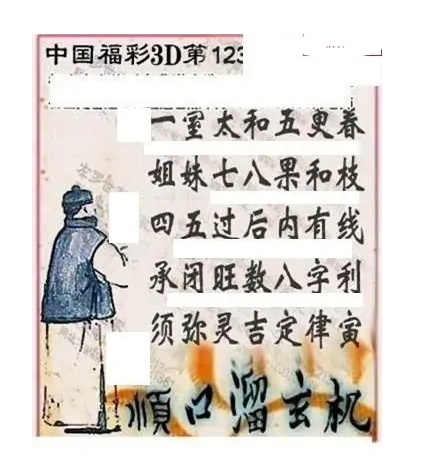 中国福彩3D第123
一室太和五更春
姐妹七八果和枝
四五过后内有线
承闭旺数八字利
须弥灵吉定律寅
顺口溜玄机